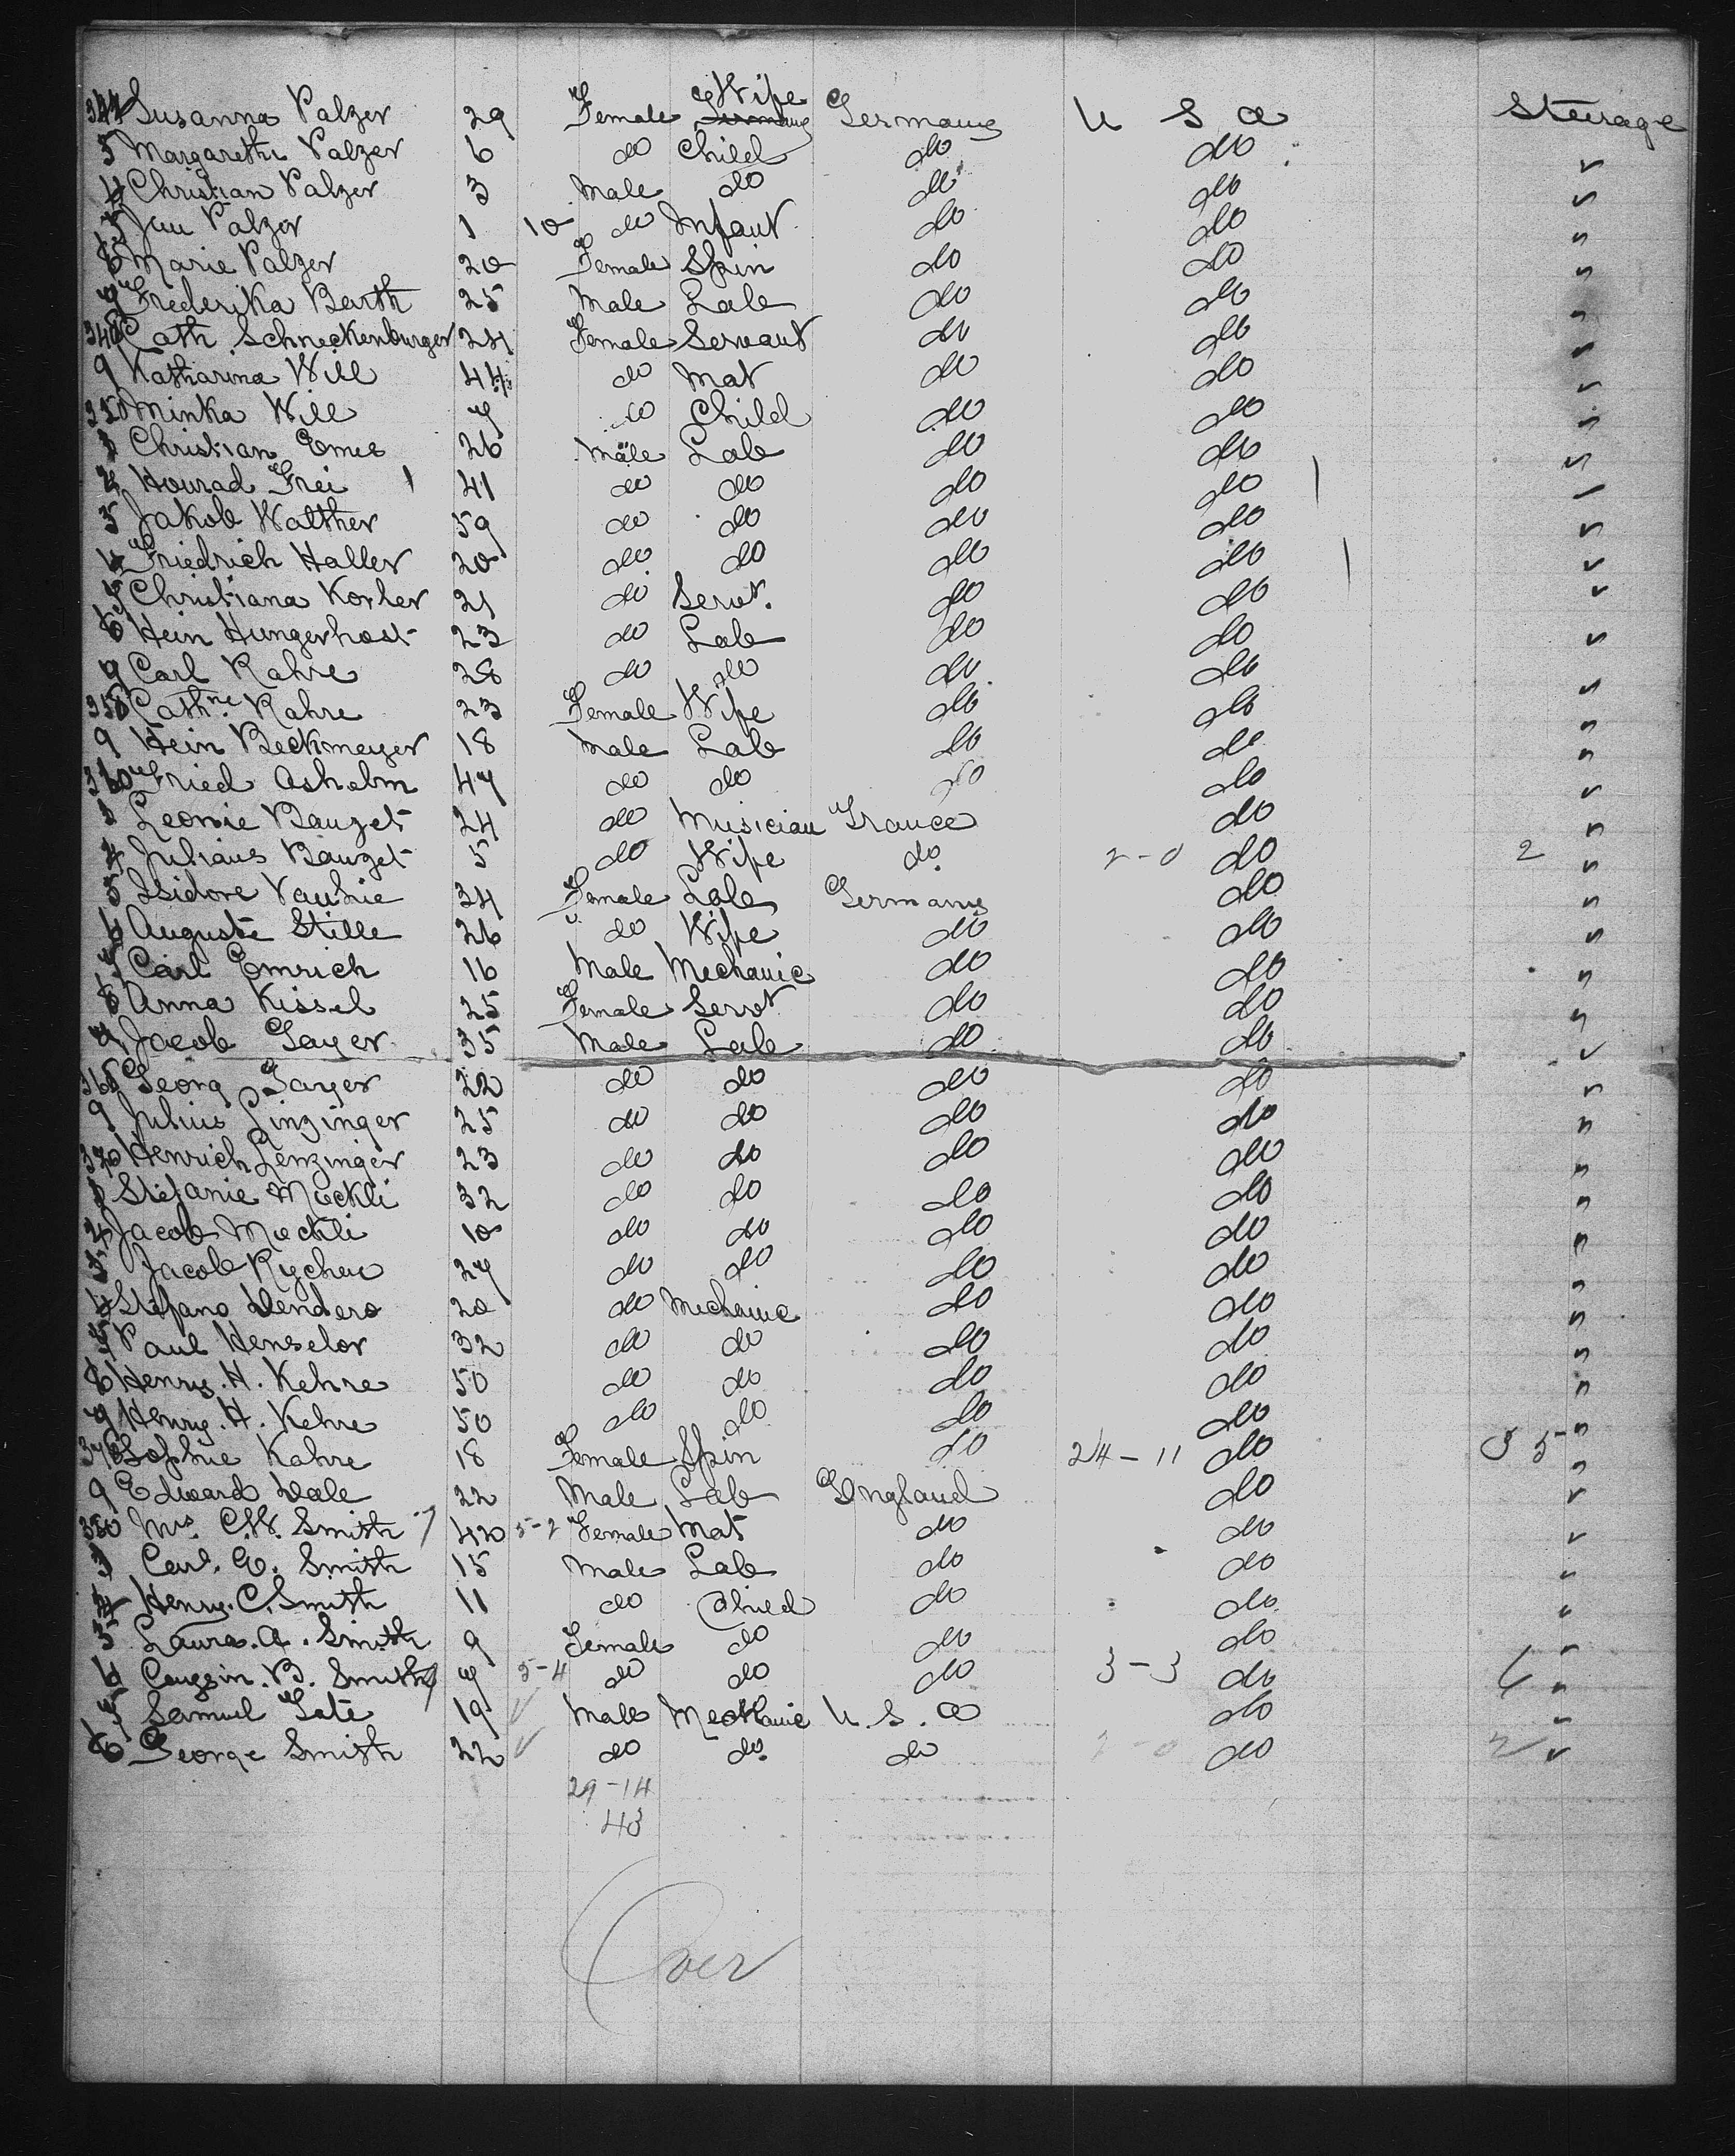 344 Susanna Palzer 29 Female Wife Germany U S A Steerage
5 Margarethe Palzer 6 do Child do do
Christian Palzer 3 Male do do do
Palzer 1 10 do Infant do do
6 Marie Palzer 20 Female Spin do do
7 Frederika Barth 25 Male Lab do do
348 Cath Schneckenburger 24 Female Servant do do
9 Katharina Will 44 do Mat do do
350 Minka Will 7 do Child do do
Christian Emes 26 Male Lab do do
2 Konrad Frei 41 do do do do
3 Jakob Walther 59 do do do do
4 Friedrich Haller 20 do do do do
5 Christiana Korher 21 do Servt. do do
6 Hein Hungerhost 23 do Lab do do
7 Carl Rahre 28 do do do do
358 Cathne Rahre 23 Female Wife do do
9 Hein Beckmeyer 18 Male Lab do do
360 Fried Ashelm 47 do do do do
Leonie Bauzet 24 do Musician France do
Bauzet 5 do Wife do 2-0 do 2
3 Isidore 34 Female Lab Germany do
4 Auguste Stille 26 do Wife do do
5 Carl Emrich 16 Male Mechanic do do
6 Anna Kissel 25 Female Servt do do
7 Jacob Gayer 35 Male Lab do do
368 Georg Gayer 22 do do do do
9 Julius Linzinger 25 do do do do
370 Henrich Lenzinger 23 do do do do
Stefanie Mockli 32 do do do do
2 Jacob Mockli 10 do do do do
3 Jacob Rychen 27 do do do do
4 Stefano Dendero 20 do Mechanic do do
5 Paul Henselor 32 do do do do
6 Henry. H. Kehre 50 do do do do
7 Henry. H. Kehre 50 do do do do
378 Sophie Kahre 18 Female Spin do 24-11 do 35
9 Edward Dale 22 Male Lab England do
380 Mrs. C.W. Smith 42 5-2 Female Mat do do
Carl. E. Smith 15 Male Lab do do
Henry. C. Smith 11 do Child do do
Laura. A. Smith 9 Female do do do
B. Smith 7 5-4 do do do 3-3 do 6
Samuel Tate 19 Male Mechanic U. S. A do
6 George Smith 22 do do do 2-0 do 2
29-14
43
Over